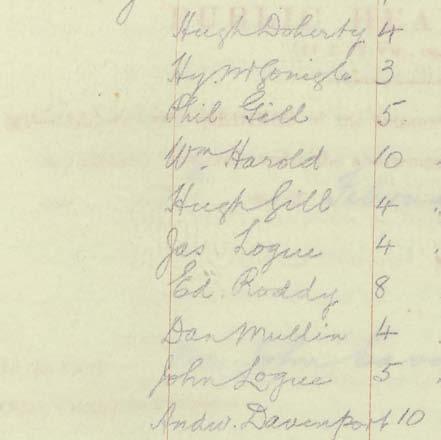 Hugh Doherty 4
Hy. McGonigle 3
Phil Gill 5
Wm Harold 10
Hugh Gill 4
Jas Logue 4
Ed. Roddy 8
Dan Mullin 4
John Logue 5
Andw. Davenport 10